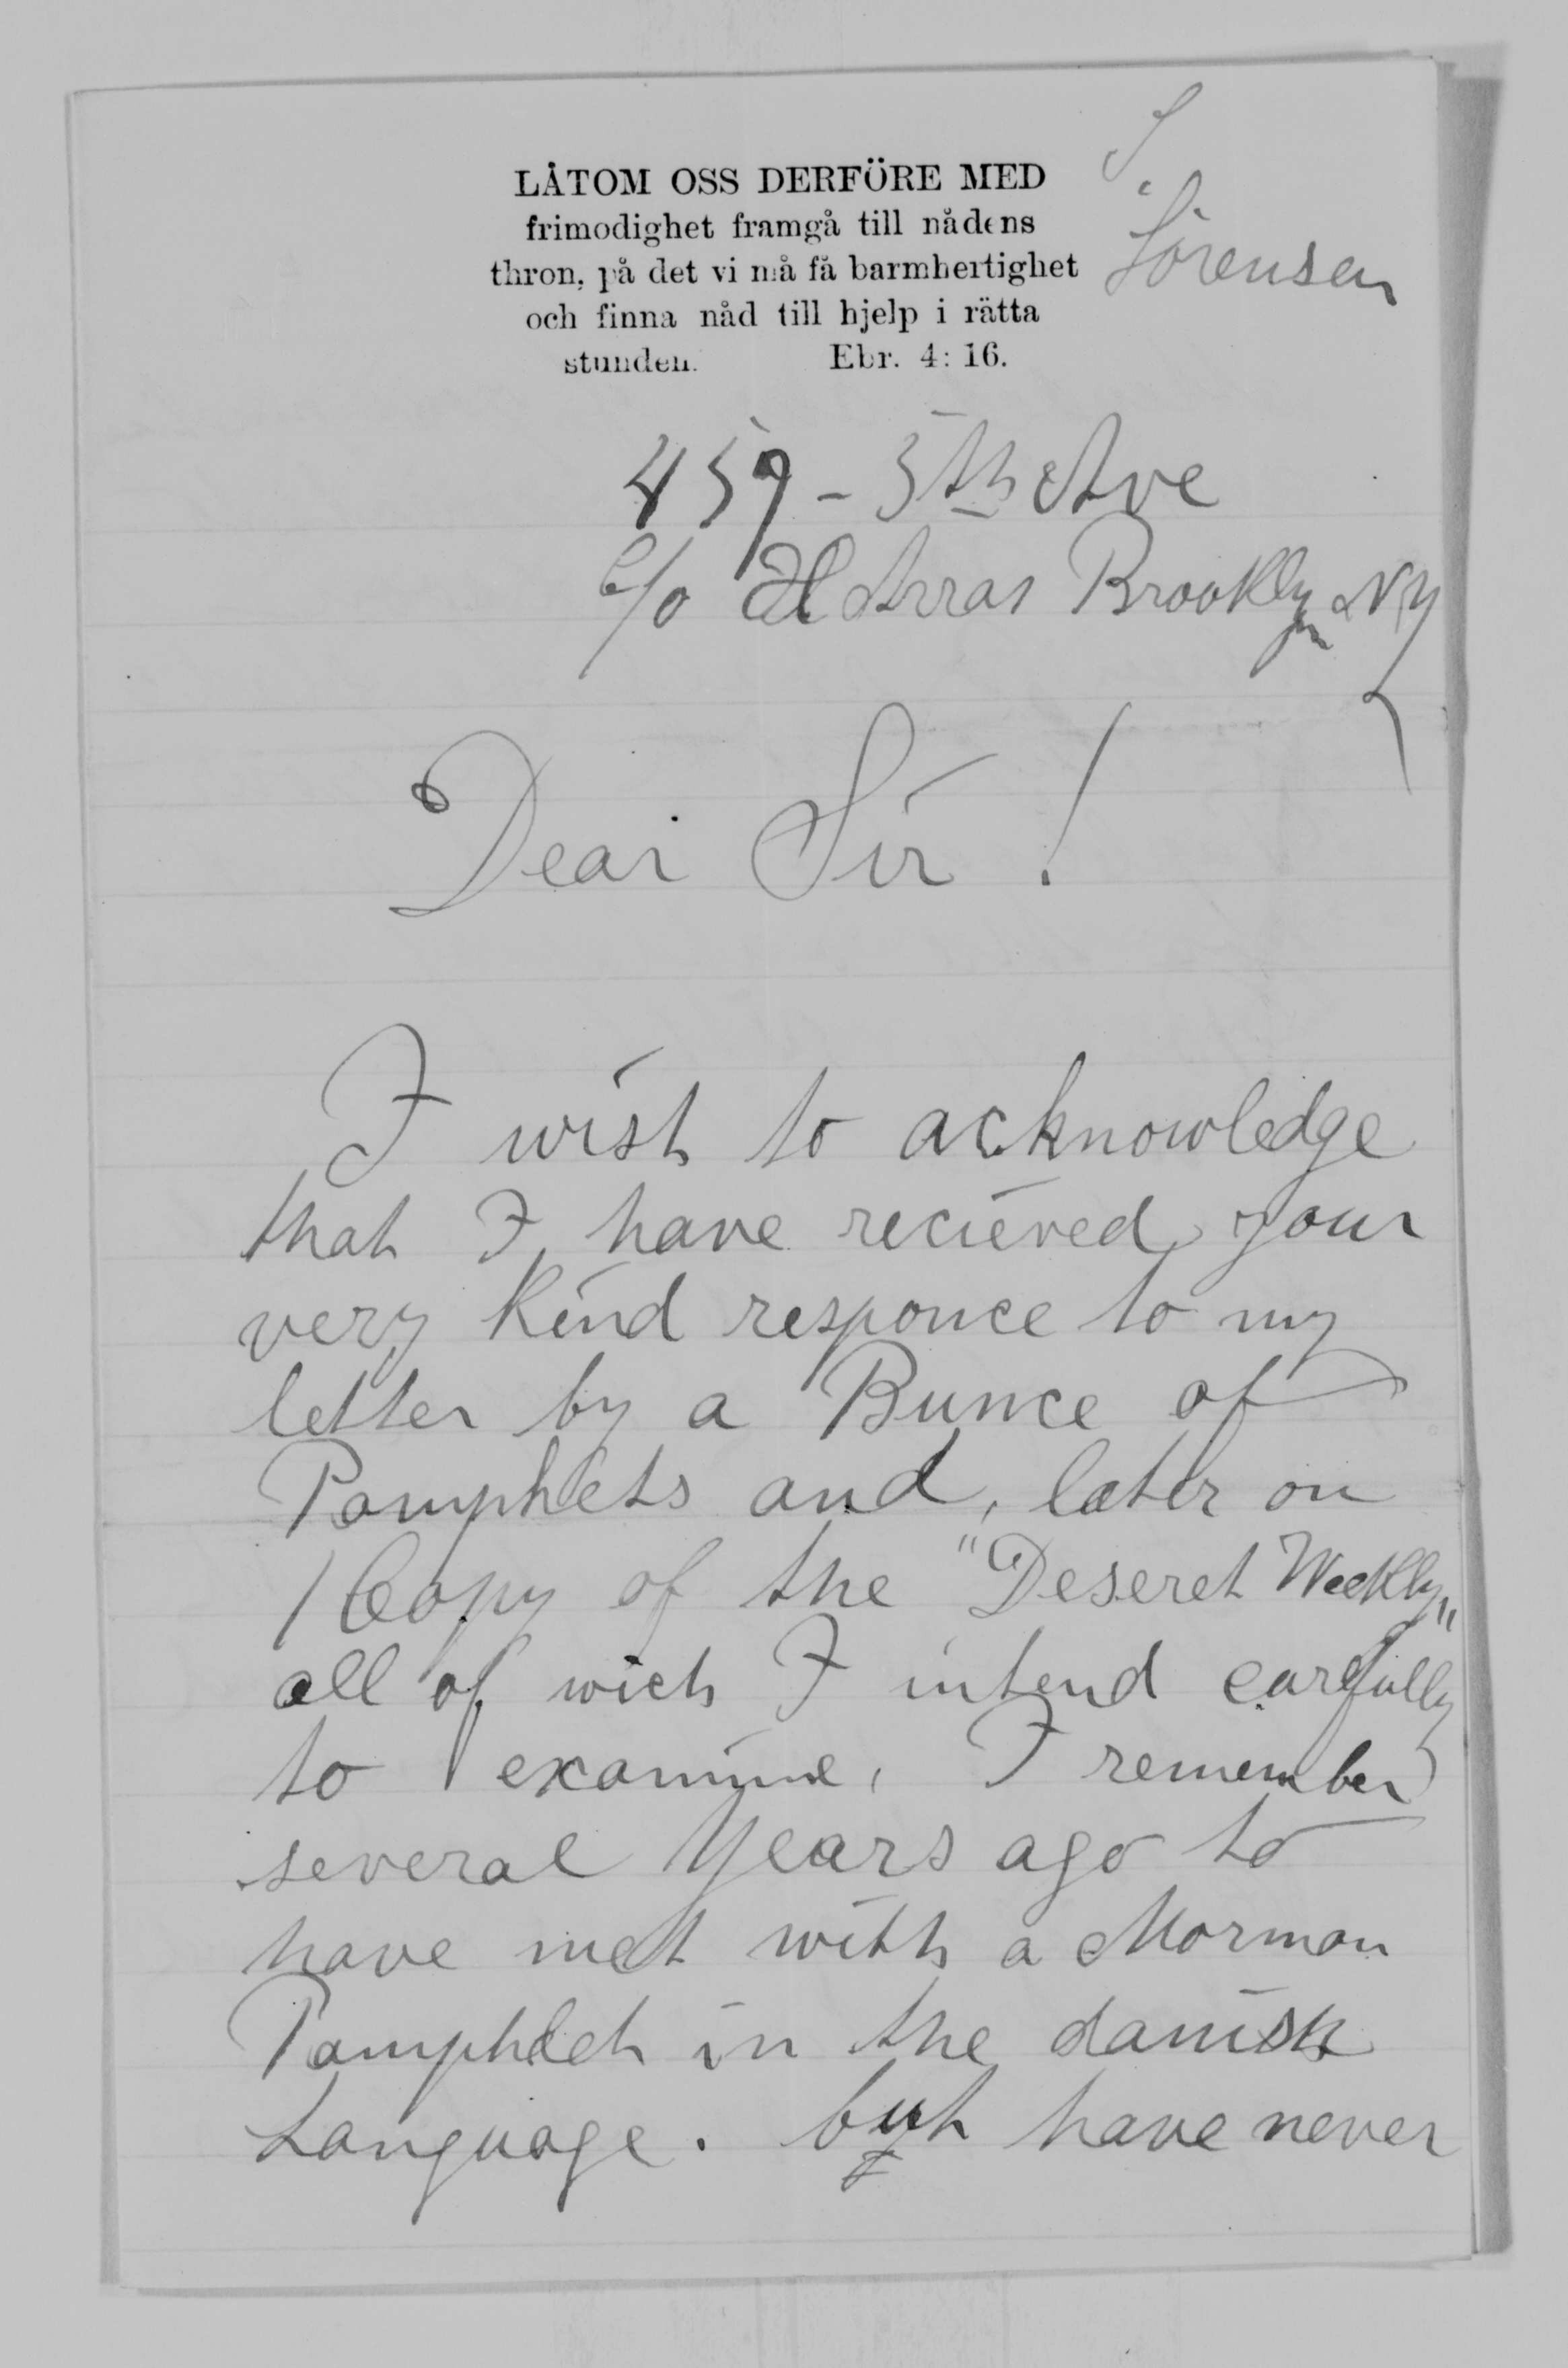 LÅTOM OSS DERFÖRE MED
frimodighet framgå till nådens
thron, på det vi må få barmhertighet
och finna nåd till hjelp i rätta
stunden. Ebr. 4: 16.
S.
Sörensen
459 - 5th Ave
c/o H Arras Brooklyn NY
Dear Sir !
I wish to acknowledge
that I have recieved your
very Kind responce to my
letter by a Bunce of
Pamphlets and, later on
1 Copy of the "Deseret Weekly"
all of wich I intend carefully
to examine, I remember
several Years ago to
have met with a Mormon
Pamphlet in the danish
Language. but have never